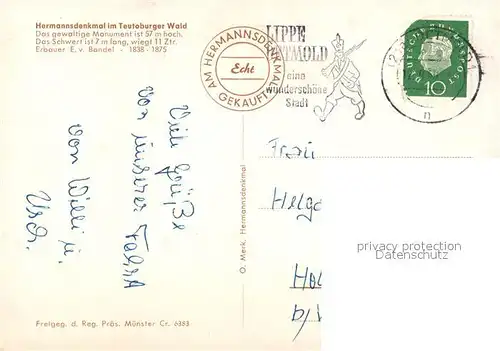 Hermannsdenkmal im Teutoburger Wald
Das gewaltige Monument ist 57 m hoch.
Das Schwert ist 7 m lang, wiegt 11 Ztr.
Erbauer E. v. Bandel - 1838 - 1875
AM HERMANNSDENKMAL
Echt
GEKAUFT
LIPPE
DETMOLD
eine
wunderschöne
Stadt
DEUTSCHE BUNDESPOST
10
n
Viele Grüße
von unserer Fahrt
von Willi u.
Frau
Helga
privacy protection
Datenschutz
O. Merk, Hermannsdenkmal
Freigeg. d. Reg. Präs. Münster Cr. 6383